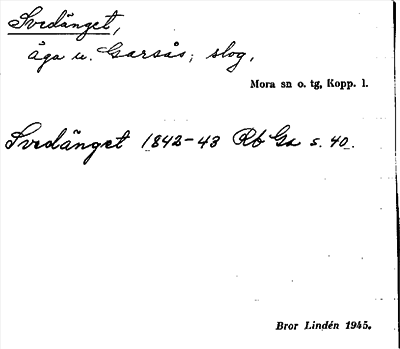 Svedänget,
äga u. Garsås; slog.
Mora sn o. tg, Kopp. l.
Svedänget 1842-43 Rb Ga s. 40.
Bror Lindén 1945.